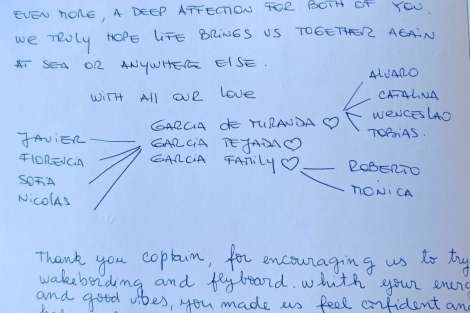 EVEN MORE, A DEEP AFFECTION FOR BOTH OF YOU.
WE TRULY HOPE LIFE BRINGS US TOGETHER AGAIN
AT SEA OR ANYWHERE ELSE.
WITH ALL OUR LOVE
ALVARO
CATALINA
GARCIA de MIRANDA ♡
WENCESLAO
TOBIAS.
JAVIER
GARCIA TEJADA ♡
FLORENCIA
GARCIA FAMILY ♡
ROBERTO
SOFIA
MONICA
NICOLAS
Thank you captain, for encouraging us to try
wakebording and flyboard. whith your energ
and good vibes, you made us feel confident an